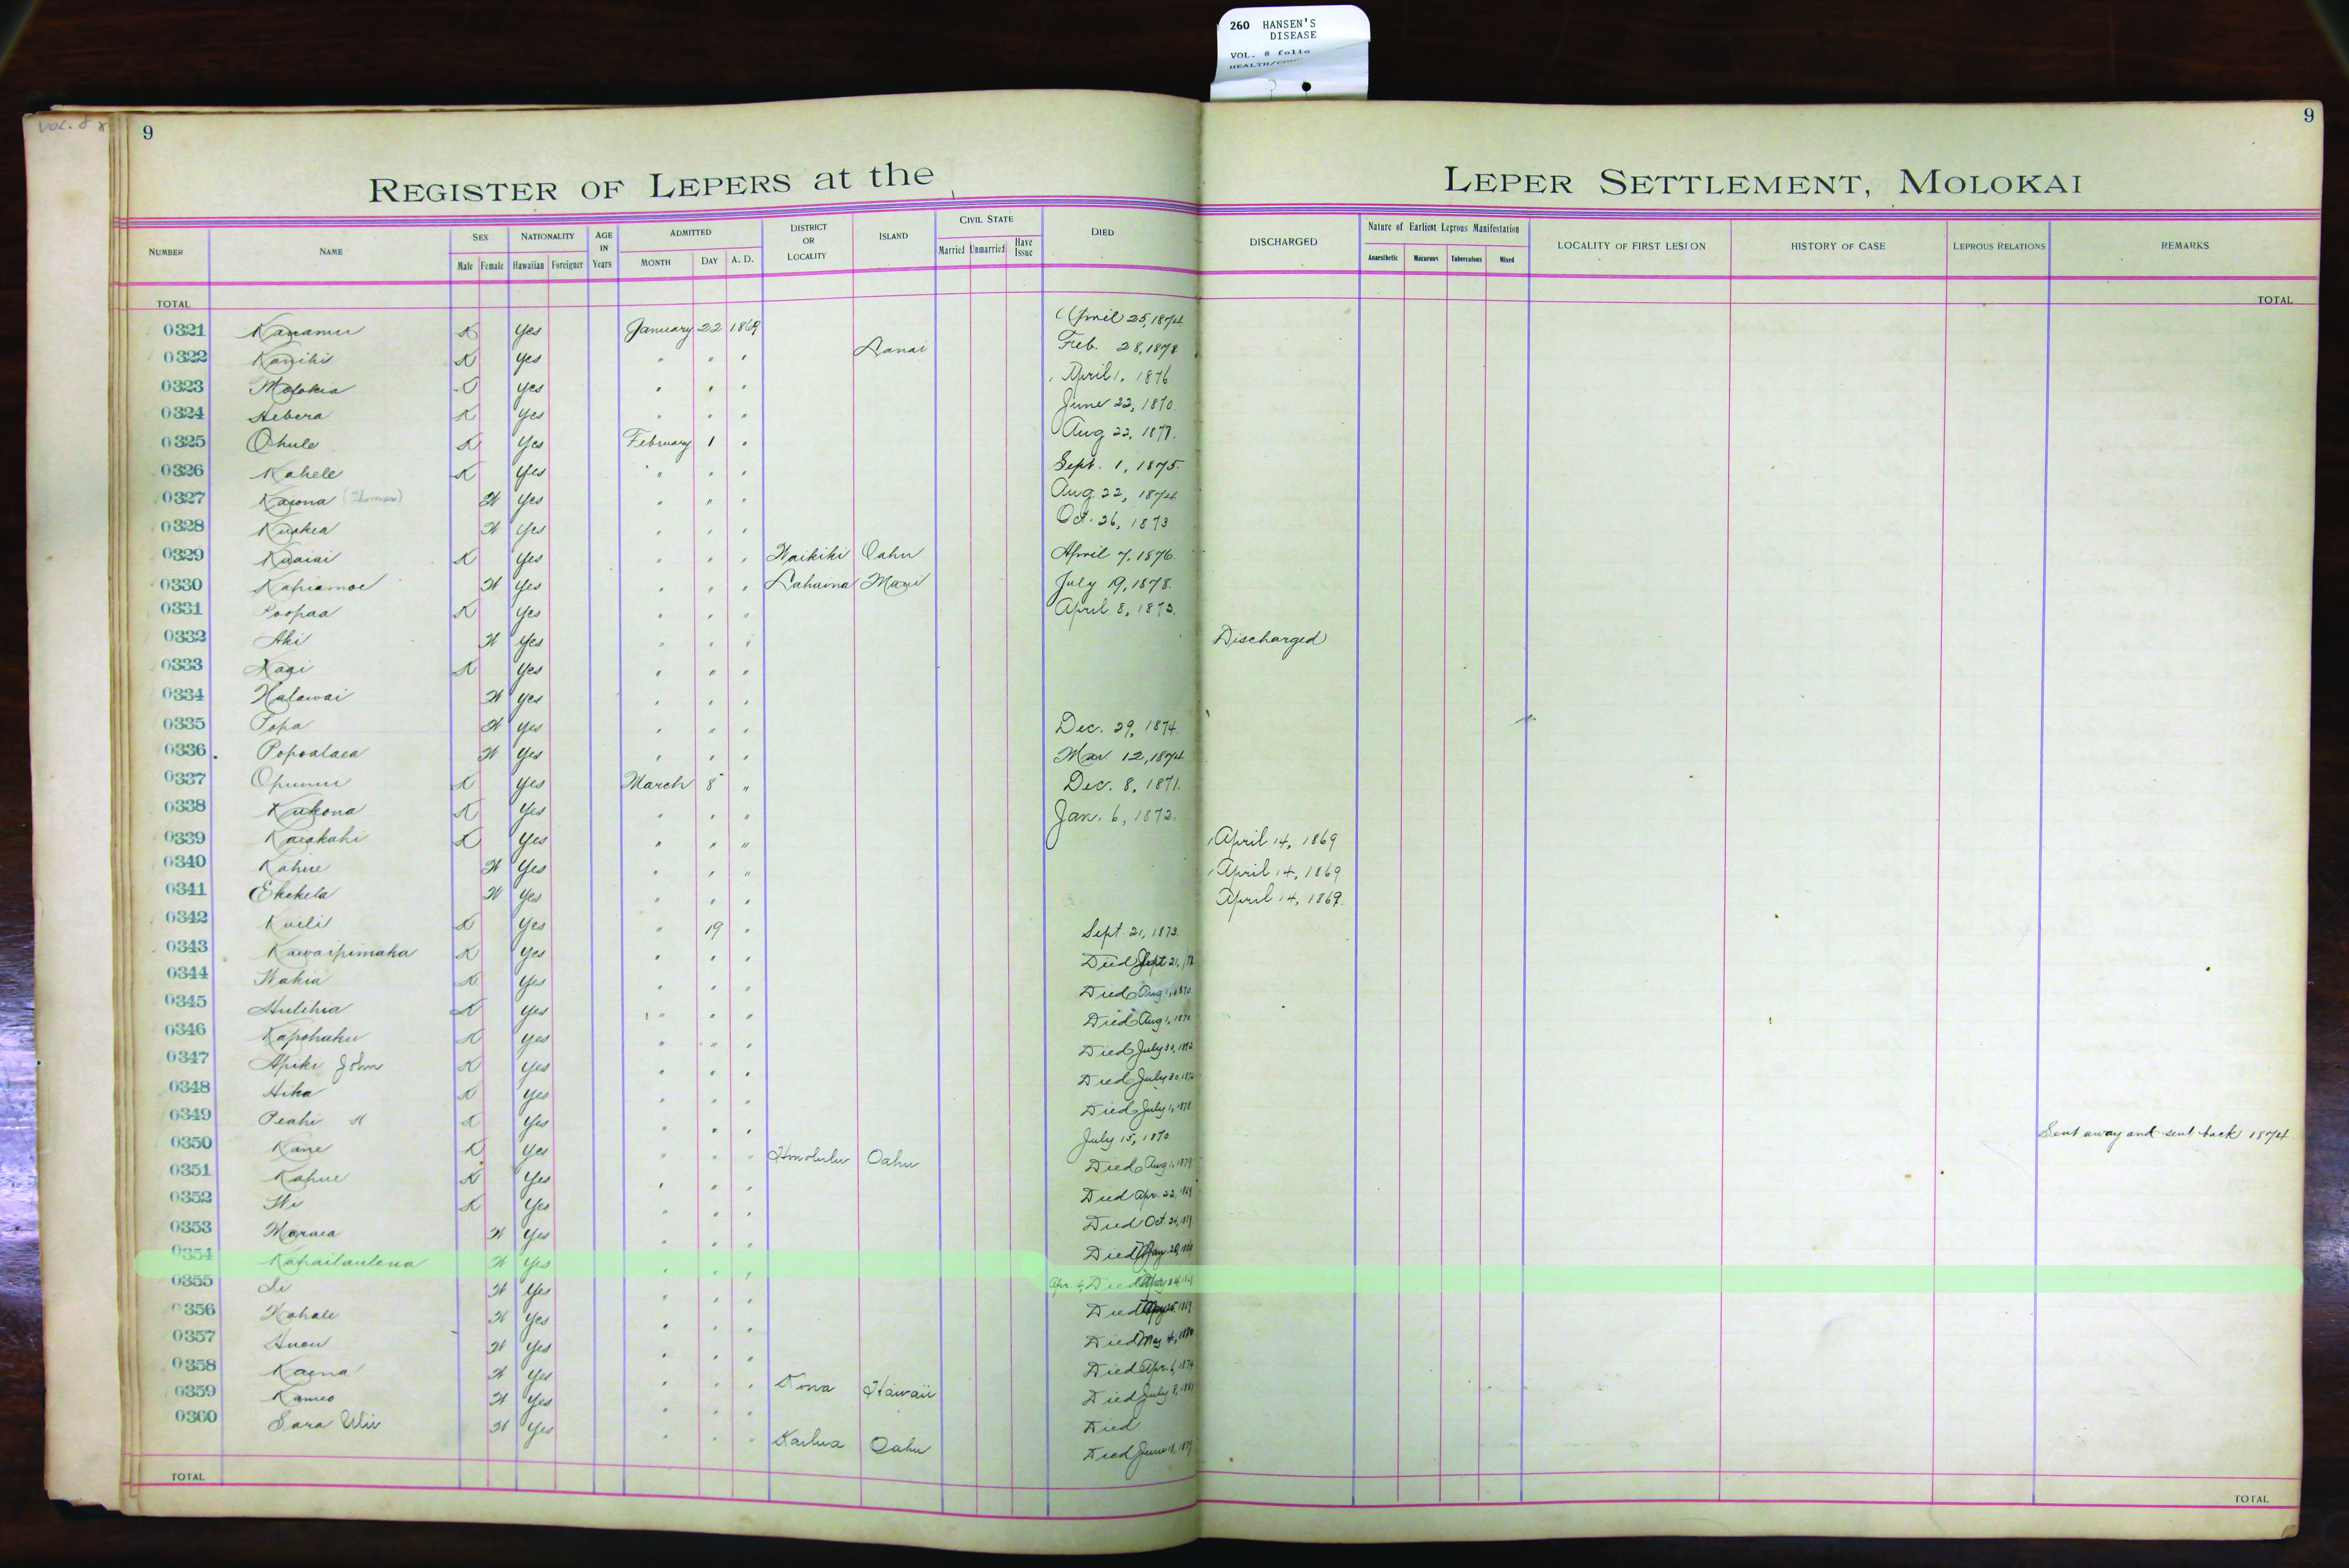 260 HANSEN'S
DISEASE
VOL. 8 folio
VOL. 8
9
9
REGISTER OF LEPERS at the LEPER SETTLEMENT, MOLOKAI
NUMBER NAME SEX NATIONALITY AGE IN Years ADMITTED DISTRICT OR LOCALITY ISLAND CIVIL STATE DIED DISCHARGED Nature of Earliest Leprous Manifestation LOCALITY OF FIRST LESION HISTORY OF CASE LEPROUS RELATIONS REMARKS
Male Female Hawaiian Foreigner MONTH DAY A. D. Married Unmarried Have Issue Anaesthetic Macurous Tuberculous Mixed
TOTAL TOTAL
0321 Kanamu K Yes January 22 1869 April 25, 1874
0322 Kanihi K Yes " " " Lanai Feb. 28, 1878
0323 Molokia Yes " " " April 1, 1876
0324 Hebera K Yes " " " June 22, 1870
0325 Ohule K Yes February 1 " Aug 22, 1877.
0326 Kahele K Yes " " " Sept. 1, 1875.
0327 Kaiona (Thomas) W Yes " " " Aug. 22, 1874
0328 Kuakea W Yes " " " Oct. 26, 1873
0329 Kuaiai K Yes " " " Waikiki Oahu April 7, 1876
0330 Kahiamoe W Yes " " " Lahaina Maui July 19, 1878.
0331 Poopaa K Yes " " " April 8, 1873.
0332 Aki W Yes " " " Discharged
0333 K Yes " " "
0334 Halawai W Yes " " "
0335 Popa W Yes " " " Dec. 29, 1874
0336 Popoalaea W Yes " " " Mar 12, 1874
0337 Opunui K Yes March 8 " Dec. 8, 1871.
0338 Kukona K Yes " " " Jan. 6, 1872.
0339 Kaiakahi K Yes " " " April 14, 1869
0340 Kahue W Yes " " " April 14, 1869
0341 Ekekela W Yes " " " April 14, 1869.
0342 Kuili K Yes " 19 " Sept. 21, 1873.
0343 Kawaipimaka K Yes " " " Died Sept 21,
0344 Wahia K Yes " " " Died Aug 1, 1870
0345 Hulihia K Yes " " " Died Aug 1, 1870
0346 Kapohaku K Yes " " " Died July 30, 1872
0347 Apiki John K Yes " " " Died July 30, 1872
0348 Hika K Yes " " " Died July 1, 1878
0349 Peahi K Yes " " " July 15, 1870 Sent away and sent back 1874
0350 Kane K Yes " " " Honolulu Oahu Died Aug 1, 1879
0351 Kahue K Yes " " " Died Apr. 22, 1869
0352 Wi K Yes " " " Died Oct. 24,
0353 Maraea W Yes " " " Died May 20, 1869
0354 Kahailaulena W Yes " " " Apr. Died
0355 Li W Yes " " " Died 1869
0356 Kahale W Yes " " " Died May 4, 1880
0357 Anou W Yes " " " Died Apr. 6, 1874
0358 Kaena W Yes " " " Kona Hawaii Died July 8, 1881
0359 Kameo W Yes " " " Died
0360 Sara W Yes " " " Kailua Oahu Died June 18, 1879
TOTAL TOTAL